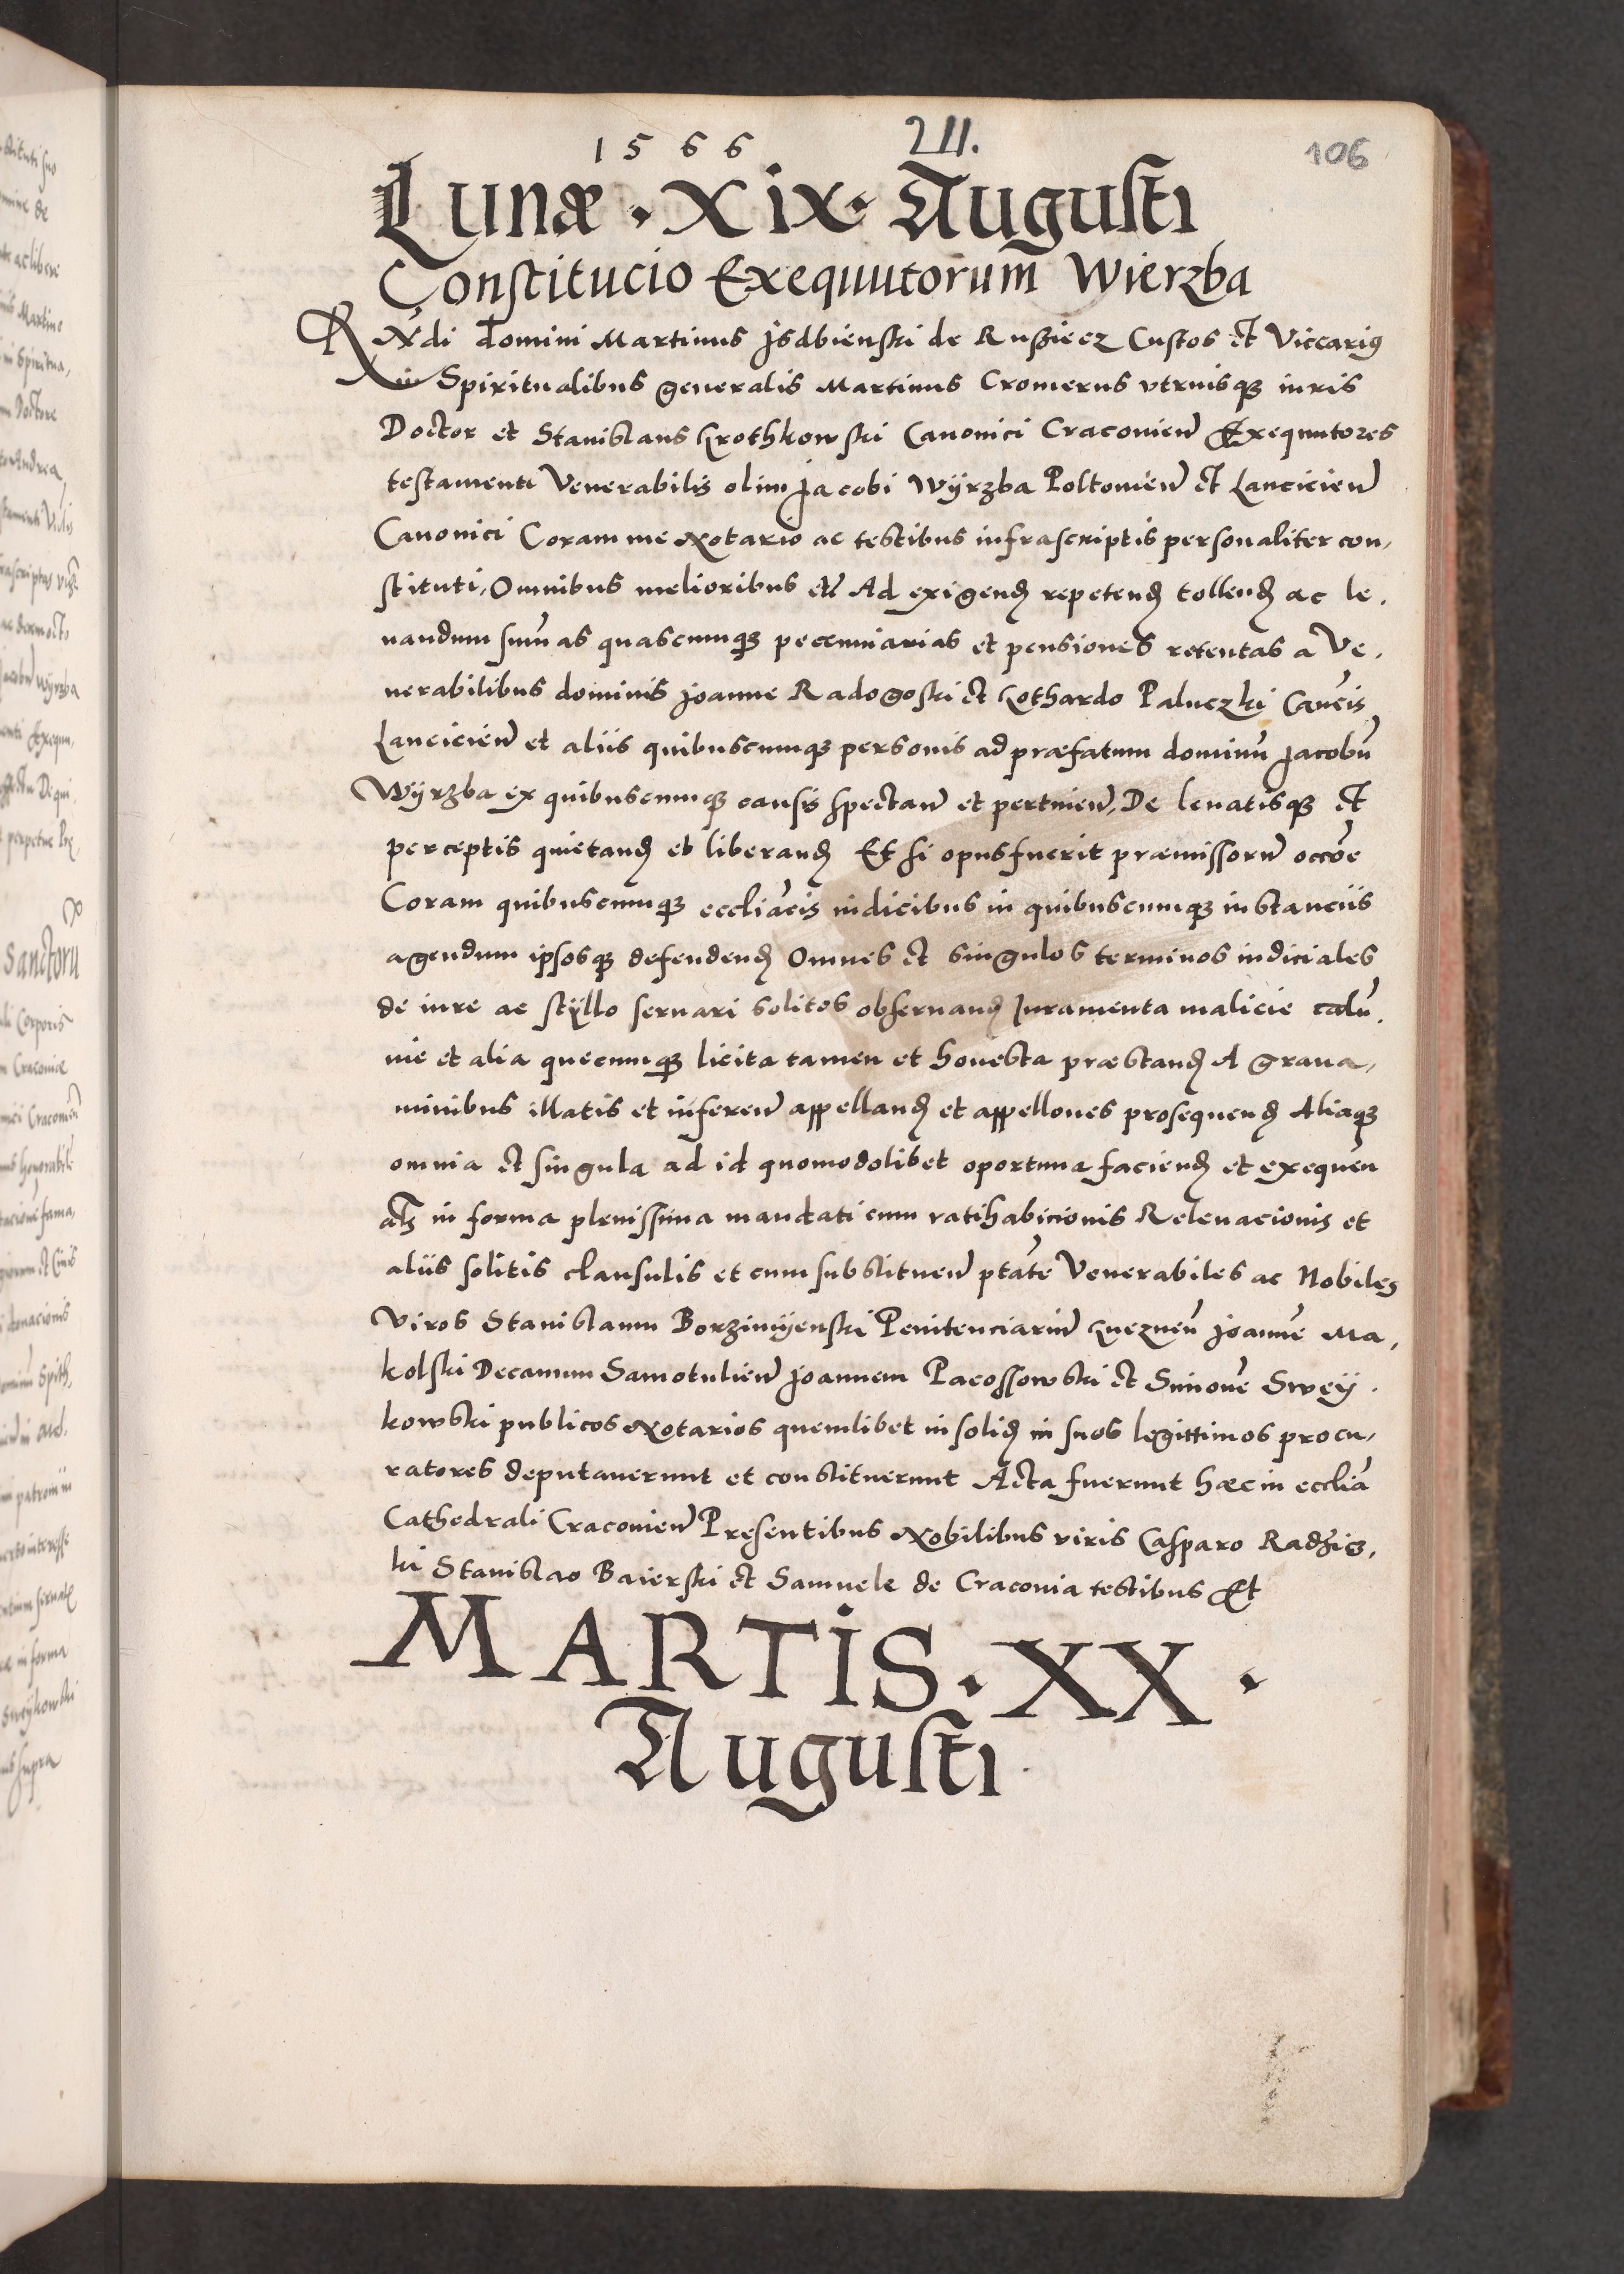 1566 211. 106
Lunæ · Xix · Augusti
Constitucio Exequutorum Wierzba
Rṅdi domini Martinus Jsdbienski de Rusziecz Custos et Viccarius
in Spiritualibus generalis Martinus Cromerus vtriusqꝫ iuris
Doctor et Stanislaus Krothkowski Canonici Cracovien̄ Exequutores
testamenti Venerabilis olim Jacobi Wyrzba Poltouien̄ et Lancicien̄
Canonici Coram me Notario ac testibus infrascriptis personaliter con,
stituti, Omnibus melioribus etc̄ Ad exigend̄ repetend̄ tollend̄ ac le,
uandum sum̄as quascumqꝫ pecuniarias et pensiones retentas a Ve,
nerabilibus dominis Joanne Radogoski et Gothardo Paluczki Can̄cis
Lancicien̄ et aliis quibuscumqꝫ personis ad præfatum dominū Jacobū
Wyrzba ex quibuscumqꝫ causis spectan̄ et pertinen̄, De leuatisqꝫ et
perceptis quietand̄ et liberand̄ Et si opus fuerit præmissorū occoē
Coram quibuscumqꝫ eccliācis iudicibus in quibuscumqꝫ instanciis
agendum ipsosqꝫ defendend̄ Omnes et singulos terminos iudiciales
de iure ac styllo seruari solitos obseruand̄ Juramenta malicie calū,
nie et alia quecumqꝫ licita tamen et honesta præstand̄ A graua,
minibus illatis et inferen̄ appelland̄ et appellones prosequend̄ Aliaqꝫ
omnia et singula ad id quomodolibet oportuna faciend̄ et exequen
als in forma plenissima mandati cum ratihabicionis Releuacionis et
aliis solitis clausulis et cum substituen̄ ptāte Venerabiles ac Nobiles
Viros Stanislaum Borzimyenski Penitenciariū Gneznen̄ Joannē Ma,
kolski Decanum Samotulien̄ Joannem Pacossowski et Simonē Swey,
kowski publicos Notarios quemlibet in solid̄ in suos legittimos procu,
ratores deputauerunt et constituerunt Acta fuerunt hæc in eccliā
Cathedrali Cracouien̄ Presentibus Nobilibus viris Casparo Radzicz,
ki Stanislao Baierski et Samuele de Cracouia testibus Et
MARTiS · XX ·
Augusti